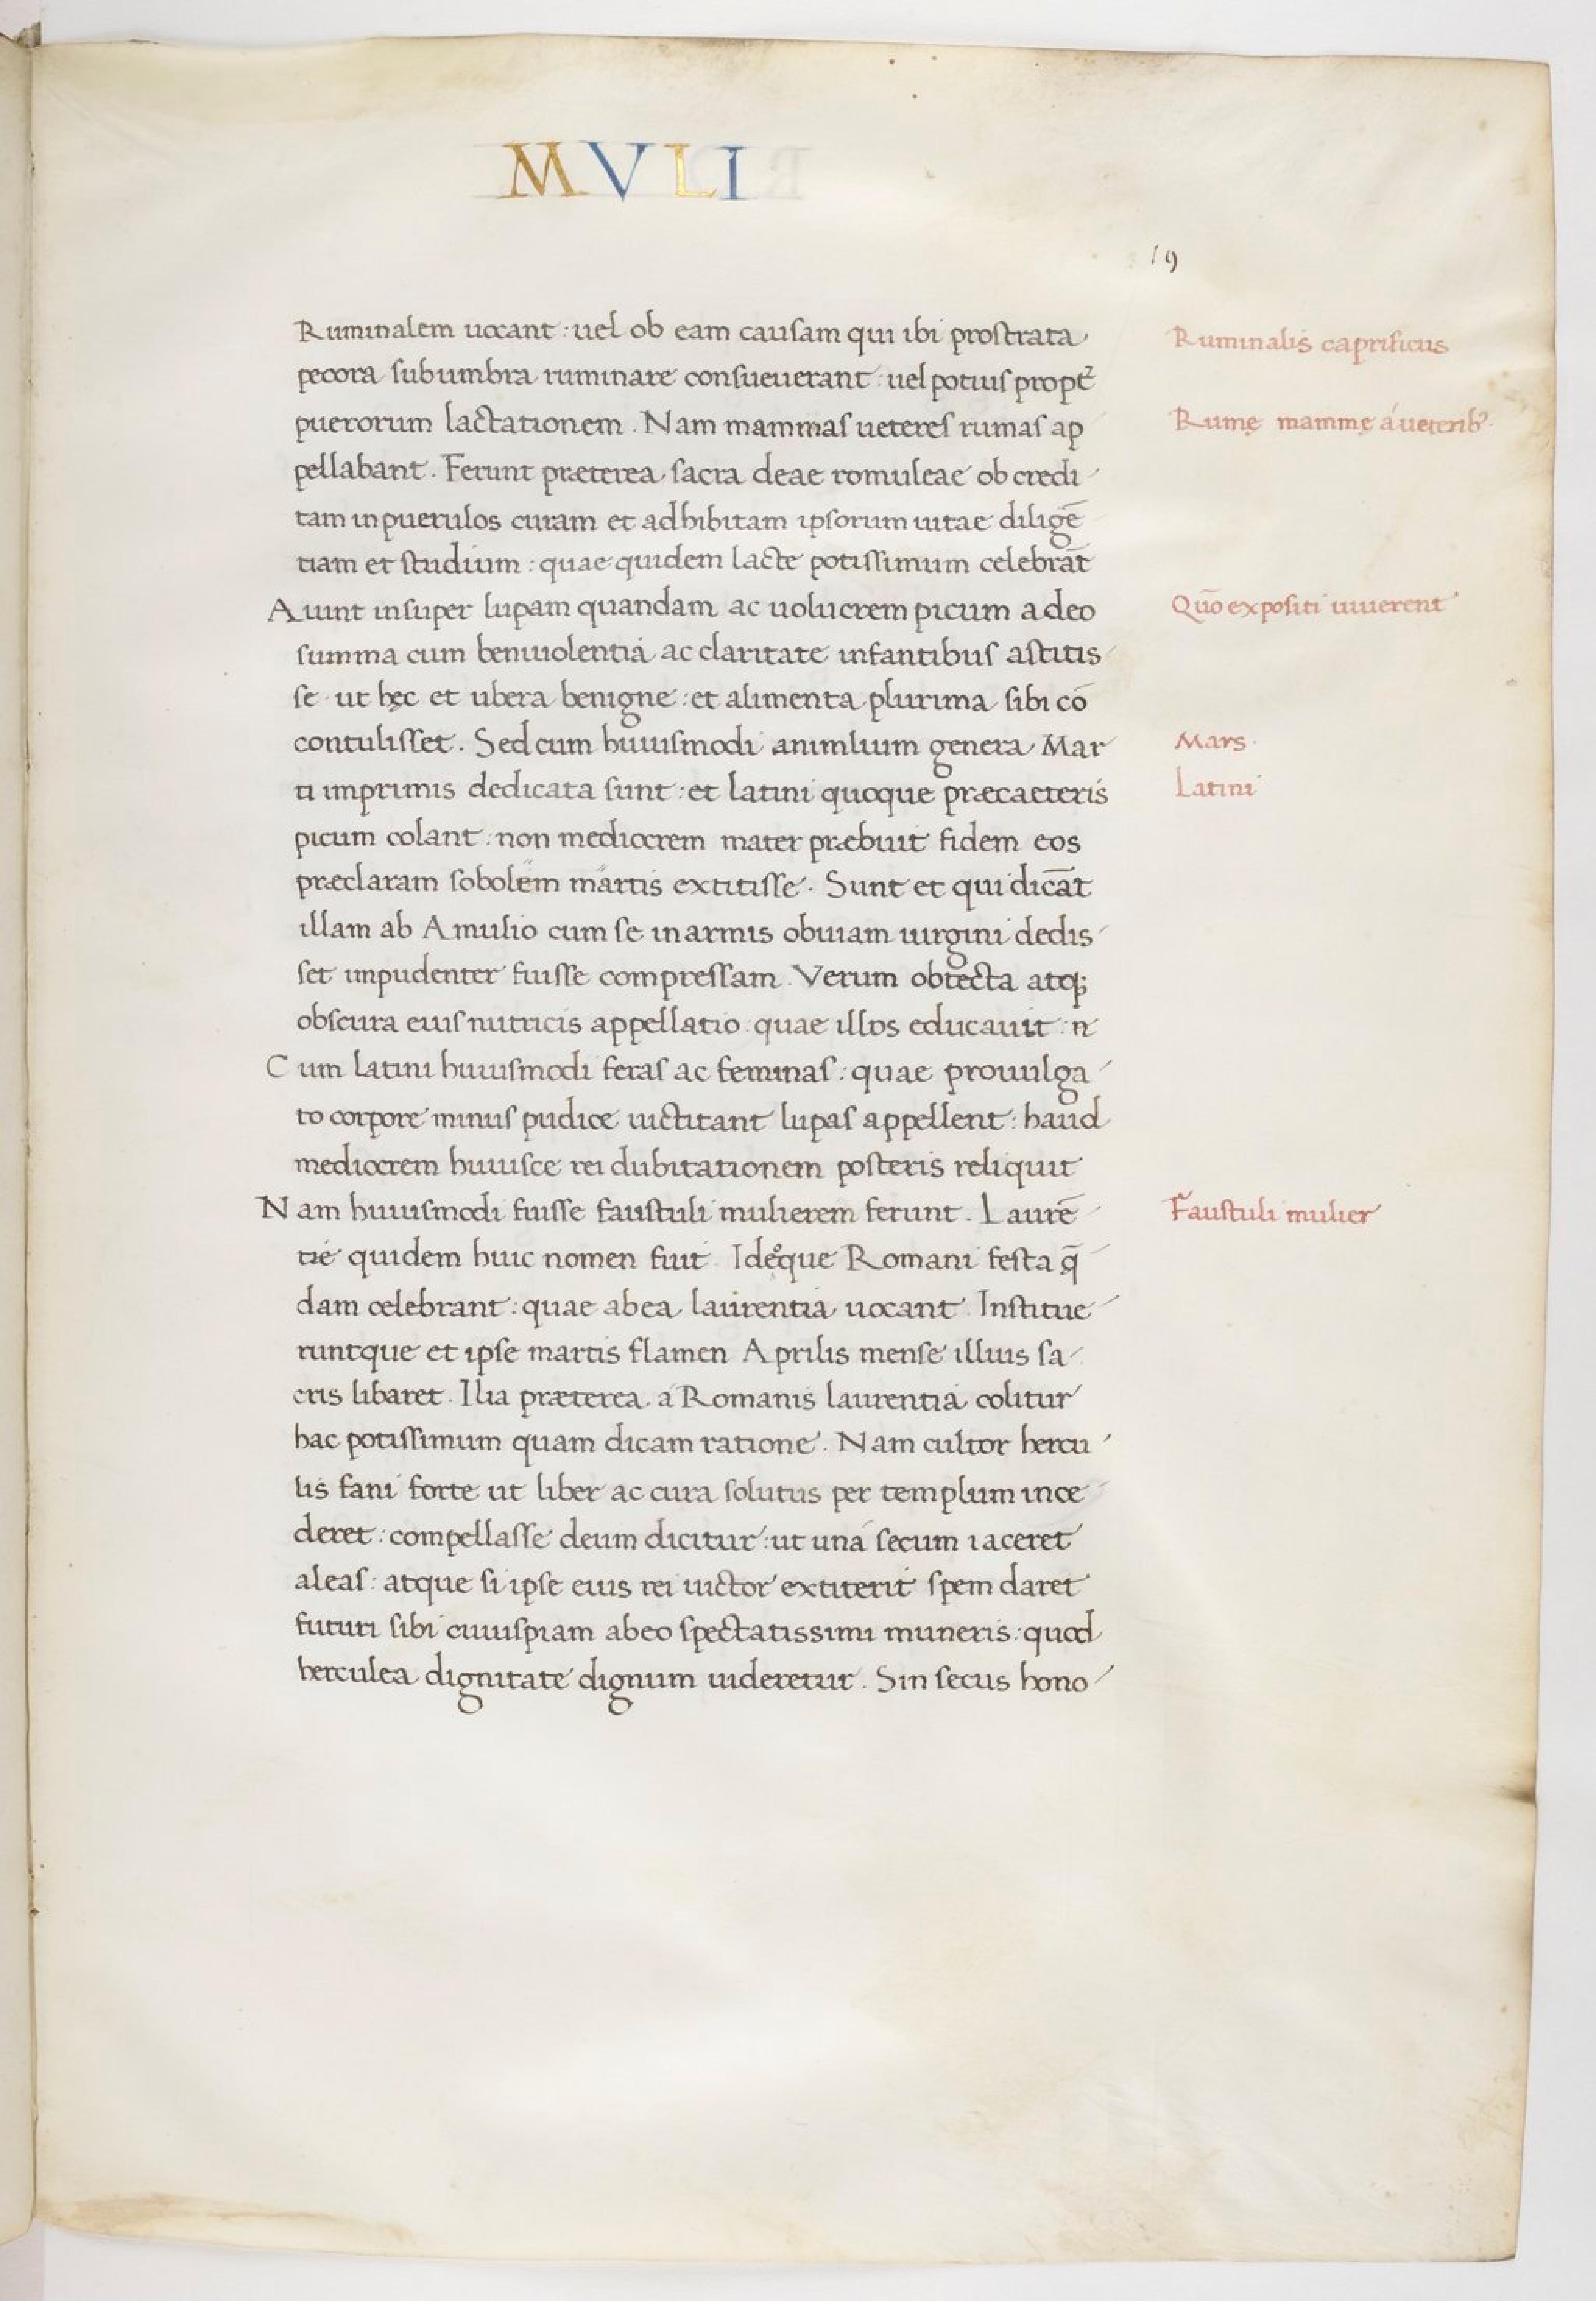 MVLI
19
Ruminalem uocant : uel ob eam causam qui ibi prostrata
Ruminalis caprificus
pecora subumbra ruminare consueuerant : uel potius propt̄
puerorum lactationem . Nam mammas ueteres rumas ap
Rumę mammę á ueterib᾿
pellabant . Ferunt præterea sacra deae romuleae ob credi
tam in puerulos curam et adhibitam ipsorum uitae diligē
tiam et studium : quae quidem lacte potissimum celebrāt
Aiunt insuper lupam quandam ac uolucrem picum adeo
Quō expositi uiuerent
summa cum beniuolentia ac claritate infantibus astitis
se ut hęc et ubera benigne : et alimenta plurima sibi cō
contulisset . Sed cum huiusmodi animlium genera Mar
Mars
ti imprimis dedicata sunt : et latini quoque præcaeteris
Latini
picum colant : non mediocrem mater præbuit fidem eos
præclaram sobolem martis extitisse . Sunt et qui dicāt
illam ab Amulio cum se in armis obuiam uirgini dedis
set impudenter fuisse compressam . Verum obtecta atq;
obscura eius nutricis appellatio quae illos educauit : n̄
Cum latini huiusmodi feras ac feminas : quae prouulga
to corpore minus pudice uictitant lupas appellent : haud
mediocrem huiusce rei dubitationem posteris reliquit
Nam huiusmodi fuisse faustuli mulierem ferunt . Laurē
Faustuli mulier
tie quidem huic nomen fuit Ideoque Romani festa q̄
dam celebrant : quae ab ea laurentia uocant Institue
runtque et ipse martis flamen Aprilis mense illius sa
cris libaret . Ilia præterea a Romanis laurentia colitur
hac potissimum quam dicam ratione . Nam cultor hercu
lis fani forte ut liber ac cura solutus per templum ince
deret : compellasse deum dicitur : ut uná secum iaceret
aleas : atque si ipse eius rei uictor extiterit spem daret
futuri sibi cuiuspiam ab eo spectatissimi muneris : quod
herculea dignitate dignum uideretur . Sin secus hono